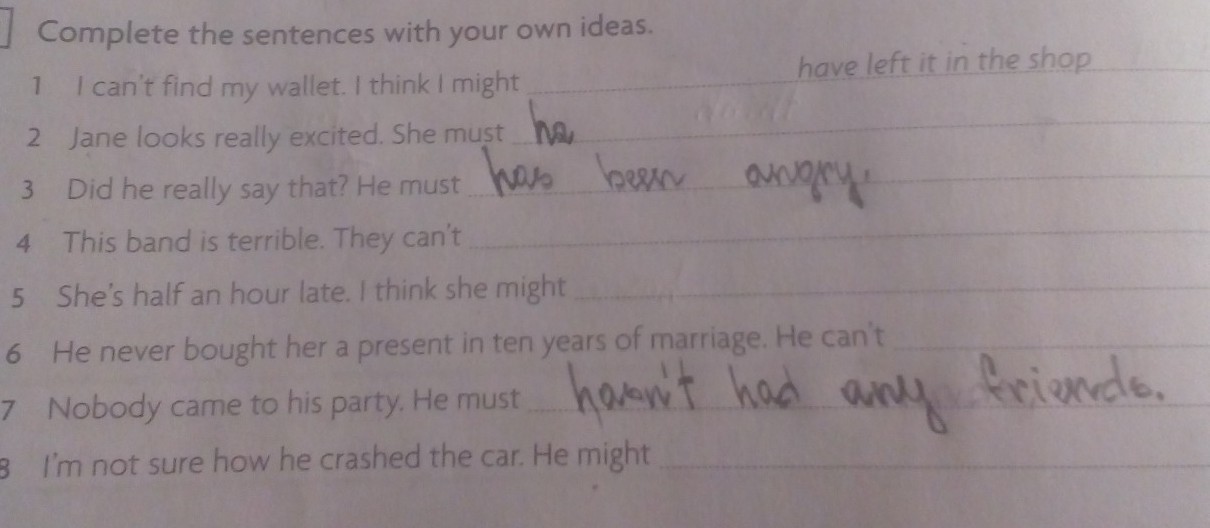 Complete the sentences with your own ideas.
1 I can't find my wallet. I think I might have left it in the shop
2 Jane looks really excited. She must ha
3 Did he really say that? He must has been angry.
4 This band is terrible. They can't
5 She's half an hour late. I think she might
6 He never bought her a present in ten years of marriage. He can't
7 Nobody came to his party. He must hasn't had any friends.
8 I'm not sure how he crashed the car. He might